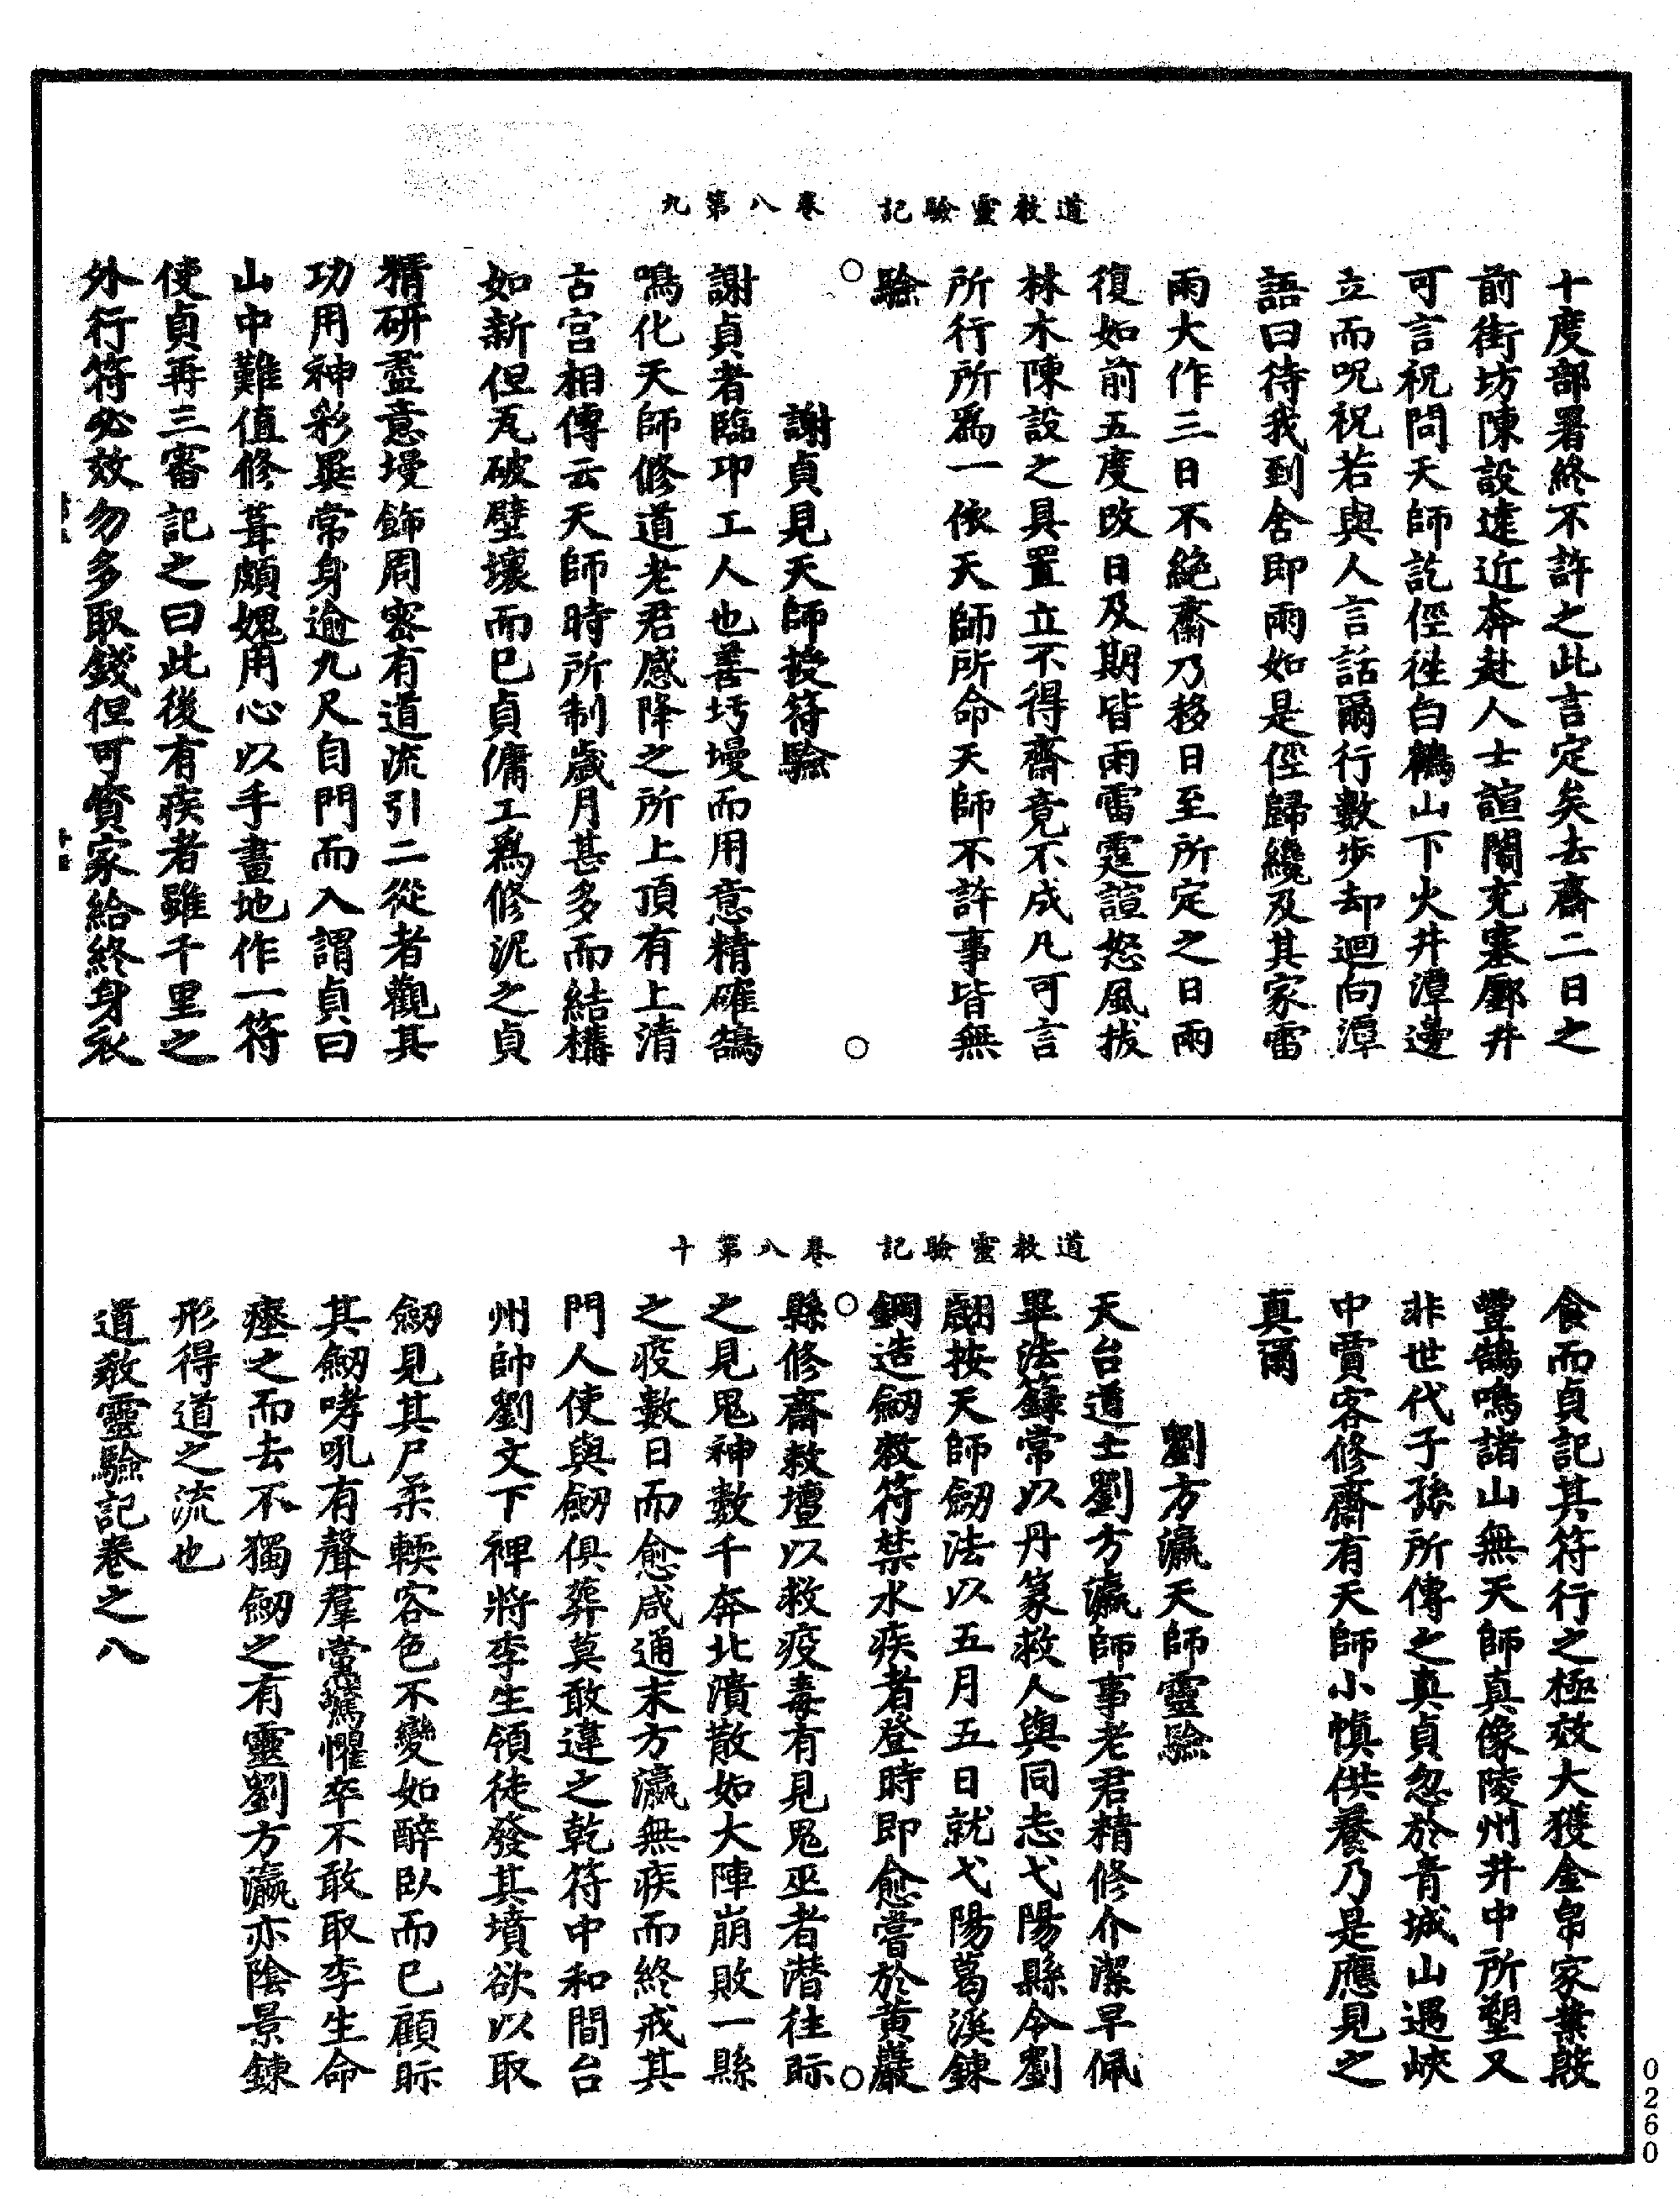 道教靈驗記　卷八第九
十度部署終不許之此言定矣去齋二日之
前街坊陳設遠近奔赴人士諠闐充塞鄽井
可言祝問天師訖俓徃白鶴山下火井潭邊
立而呪祝若與人言話爾行數步却迴向潭
語曰待我到舍即雨如是俓歸纔及其家雷
雨大作三日不絕齋乃移日至所定之日雨
復如前五度改日及期皆雨雷霆諠怒風拔
林木陳設之具置立不得齋竟不成凡可言
所行所爲一依天師所命天師不許事皆無
驗
謝貞見天師授符驗
謝貞者臨邛工人也善圬墁而用意精確鵠
鳴化天師修道老君感降之所上頂有上清
古宮相傳云天師時所制歲月甚多而結構
如新但瓦破壁壞而已貞傭工爲修泥之貞
精研盡意墁飾周密有道流引二從者觀其
功用神彩異常身逾九尺自門而入謂貞曰
山中難值修葺頗媿用心以手畫地作一符
使貞再三審記之曰此後有疾者雖千里之
外行符必效勿多取錢但可資家給終身衣
道教靈驗記　卷八第十
食而貞記其符行之極效大獲金帛家業殷
豐鵠鳴諸山無天師真像陵州井中所塑又
非世代子孫所傳之真貞忽於青城山遇峽
中賈客修齋有天師小幀供養乃是應見之
真爾
劉方瀛天師靈驗
天台道士劉方瀛師事老君精修介潔早佩
畢法籙常以丹篆救人與同志弋陽縣令劉
翩按天師劒法以五月五日就弋陽葛溪鍊
鋼造劒敕符禁水疾者登時即愈嘗於黃巖
縣修齋敕壇以救疫毒有見鬼巫者潛往眎
之見鬼神數千奔北潰散如大陣崩敗一縣
之疫數日而愈咸通末方瀛無疾而終戒其
門人使與劒俱葬莫敢違之乾符中和間台
州帥劉文下裨將李生領徒發其墳欲以取
劒見其尸柔輭容色不變如醉臥而已顧眎
其劒哮吼有聲羣黨驚懼卒不敢取李生命
瘞之而去不獨劒之有靈劉方瀛亦陰景鍊
形得道之流也
道敎靈驗記卷之八
0260